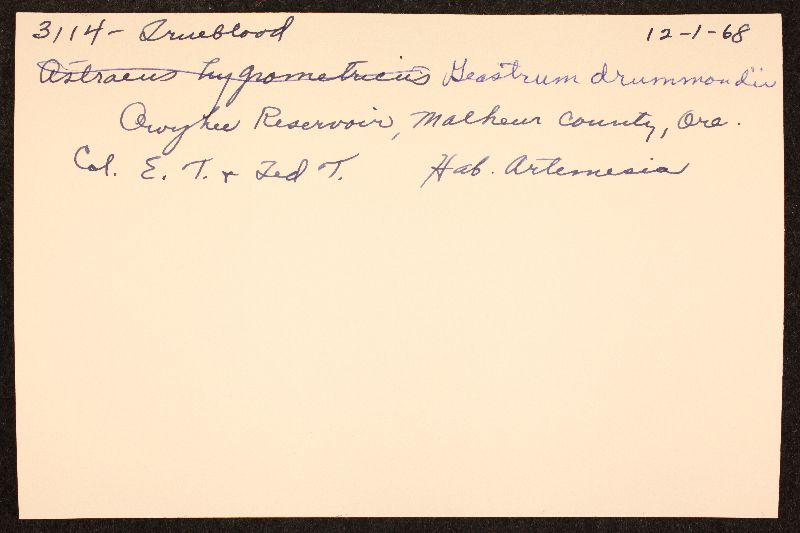 3114- Trueblood 12-1-68
Astraeus hygrometricus Geastrum drummondii
Owyhee Reservoir, Malheur County, Ore.
Col. E. T. + Ted T. Hab. Artemesia